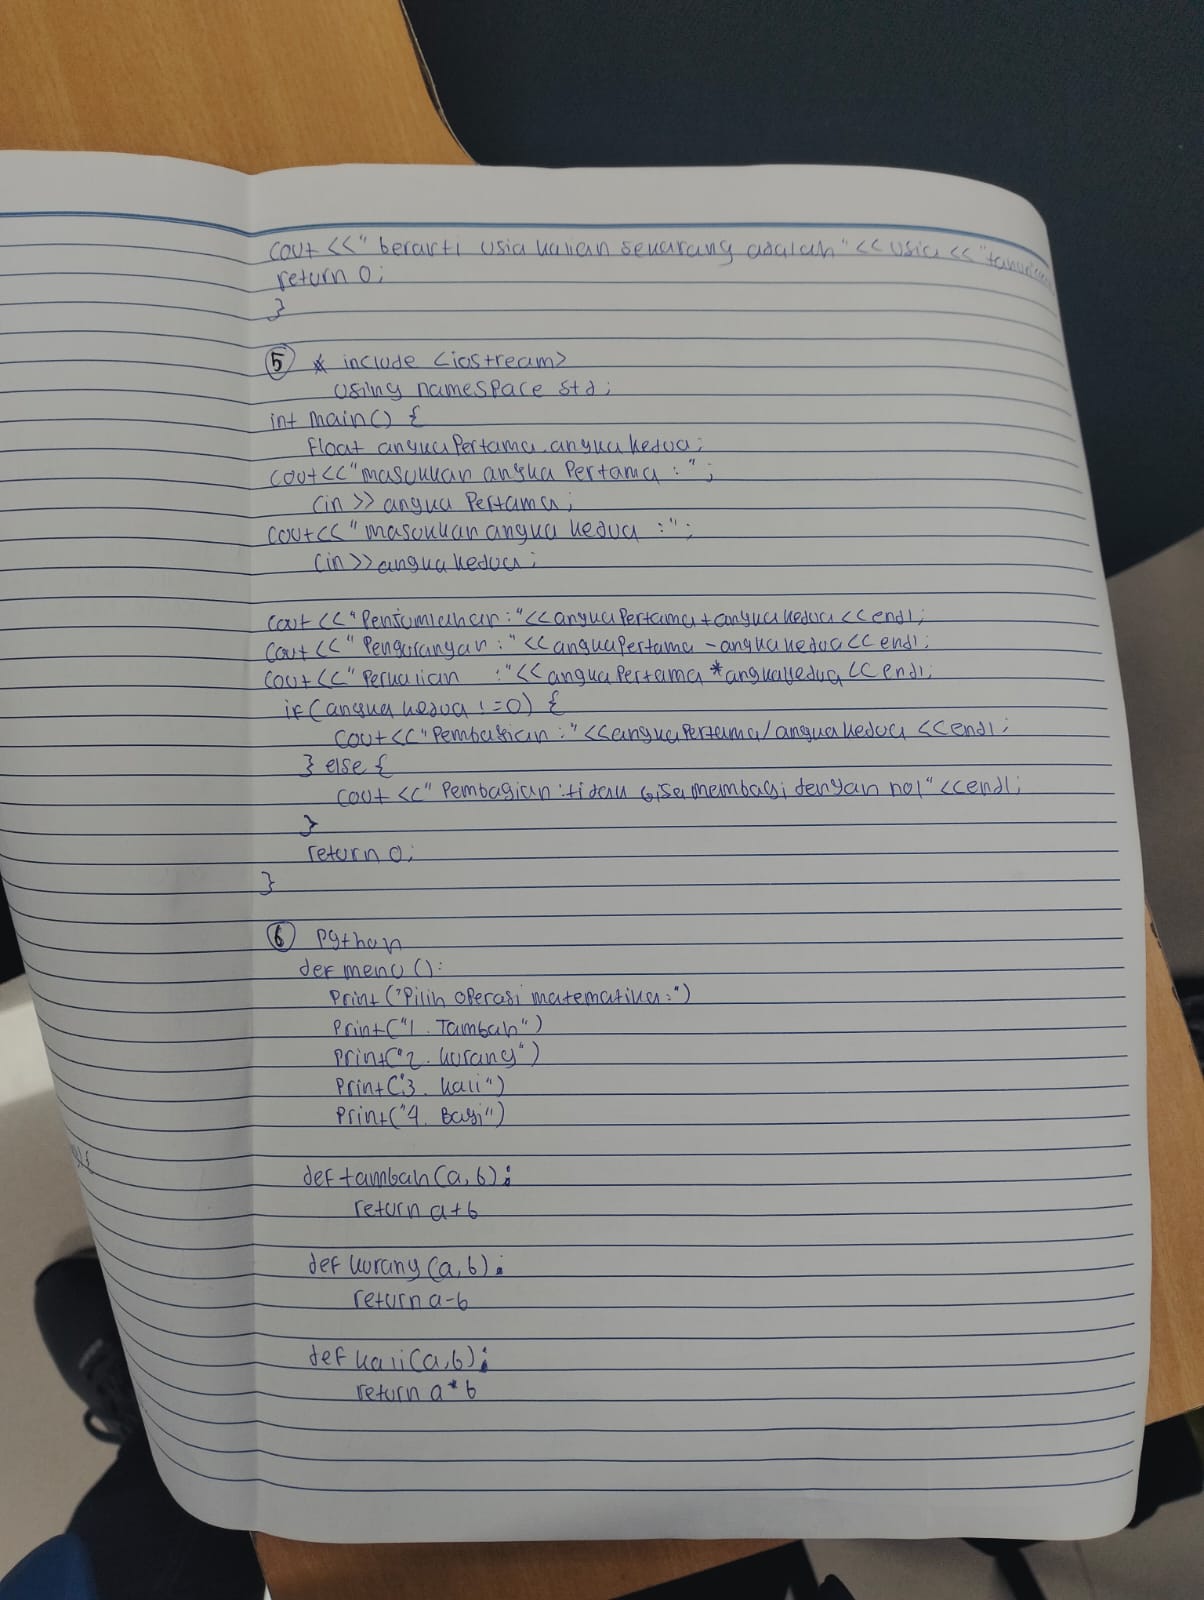 cout <<" berarti usia kalian sekarang adalah" << usia << "tahun"
return 0;
}
⑤ # include <iostream>
using namespace std;
int main() {
Float angkaPertama, angkakedua;
cout<<"masukkan angka Pertama :";
cin >> angka Pertama;
cout<<" masukkan angka kedua :";
cin>>angka kedua;
cout <<"Penjumlahan:"<<angkaPertama+angkakedua<<endl;
cout <<" Pengurangan:"<<angkaPertama-angkakedua<<endl;
cout<<"Perkalian :"<<angkaPertama*angkakedua<<endl;
if(angka kedua !=0) {
cout<<"Pembagian:"<<angkaPertama/angkakedua<<endl;
} else {
cout <<" Pembagian:tidak bisa membagi dengan nol"<<endl;
}
return 0;
}
⑥ Python
def menu ():
Print ("Pilih operasi matematika:")
Print("1. Tambah")
Print("2. kurang")
Print("3. kali")
Print("4. Bagi")
def tambah(a, b):
return a+b
def kurang (a, b):
return a-b
def kali(a,b):
return a*b